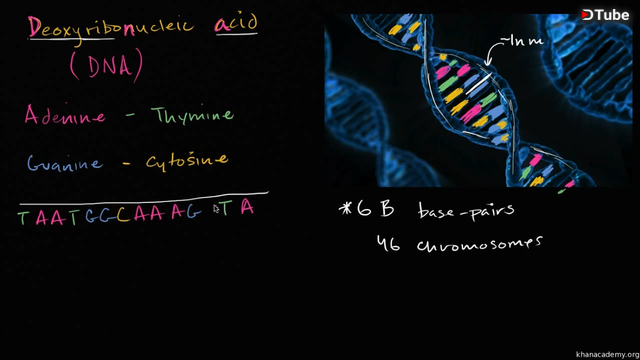 Deoxyribonucleic acid
(DNA)
Adenine - Thymine
Guanine - Cytosine
TAATGGCAAAG TA
DTube
~1nm
*6 B base-pairs
46 chromosomes
khanacademy.org